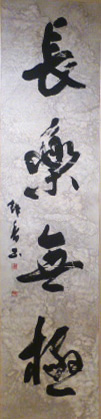 長樂無極